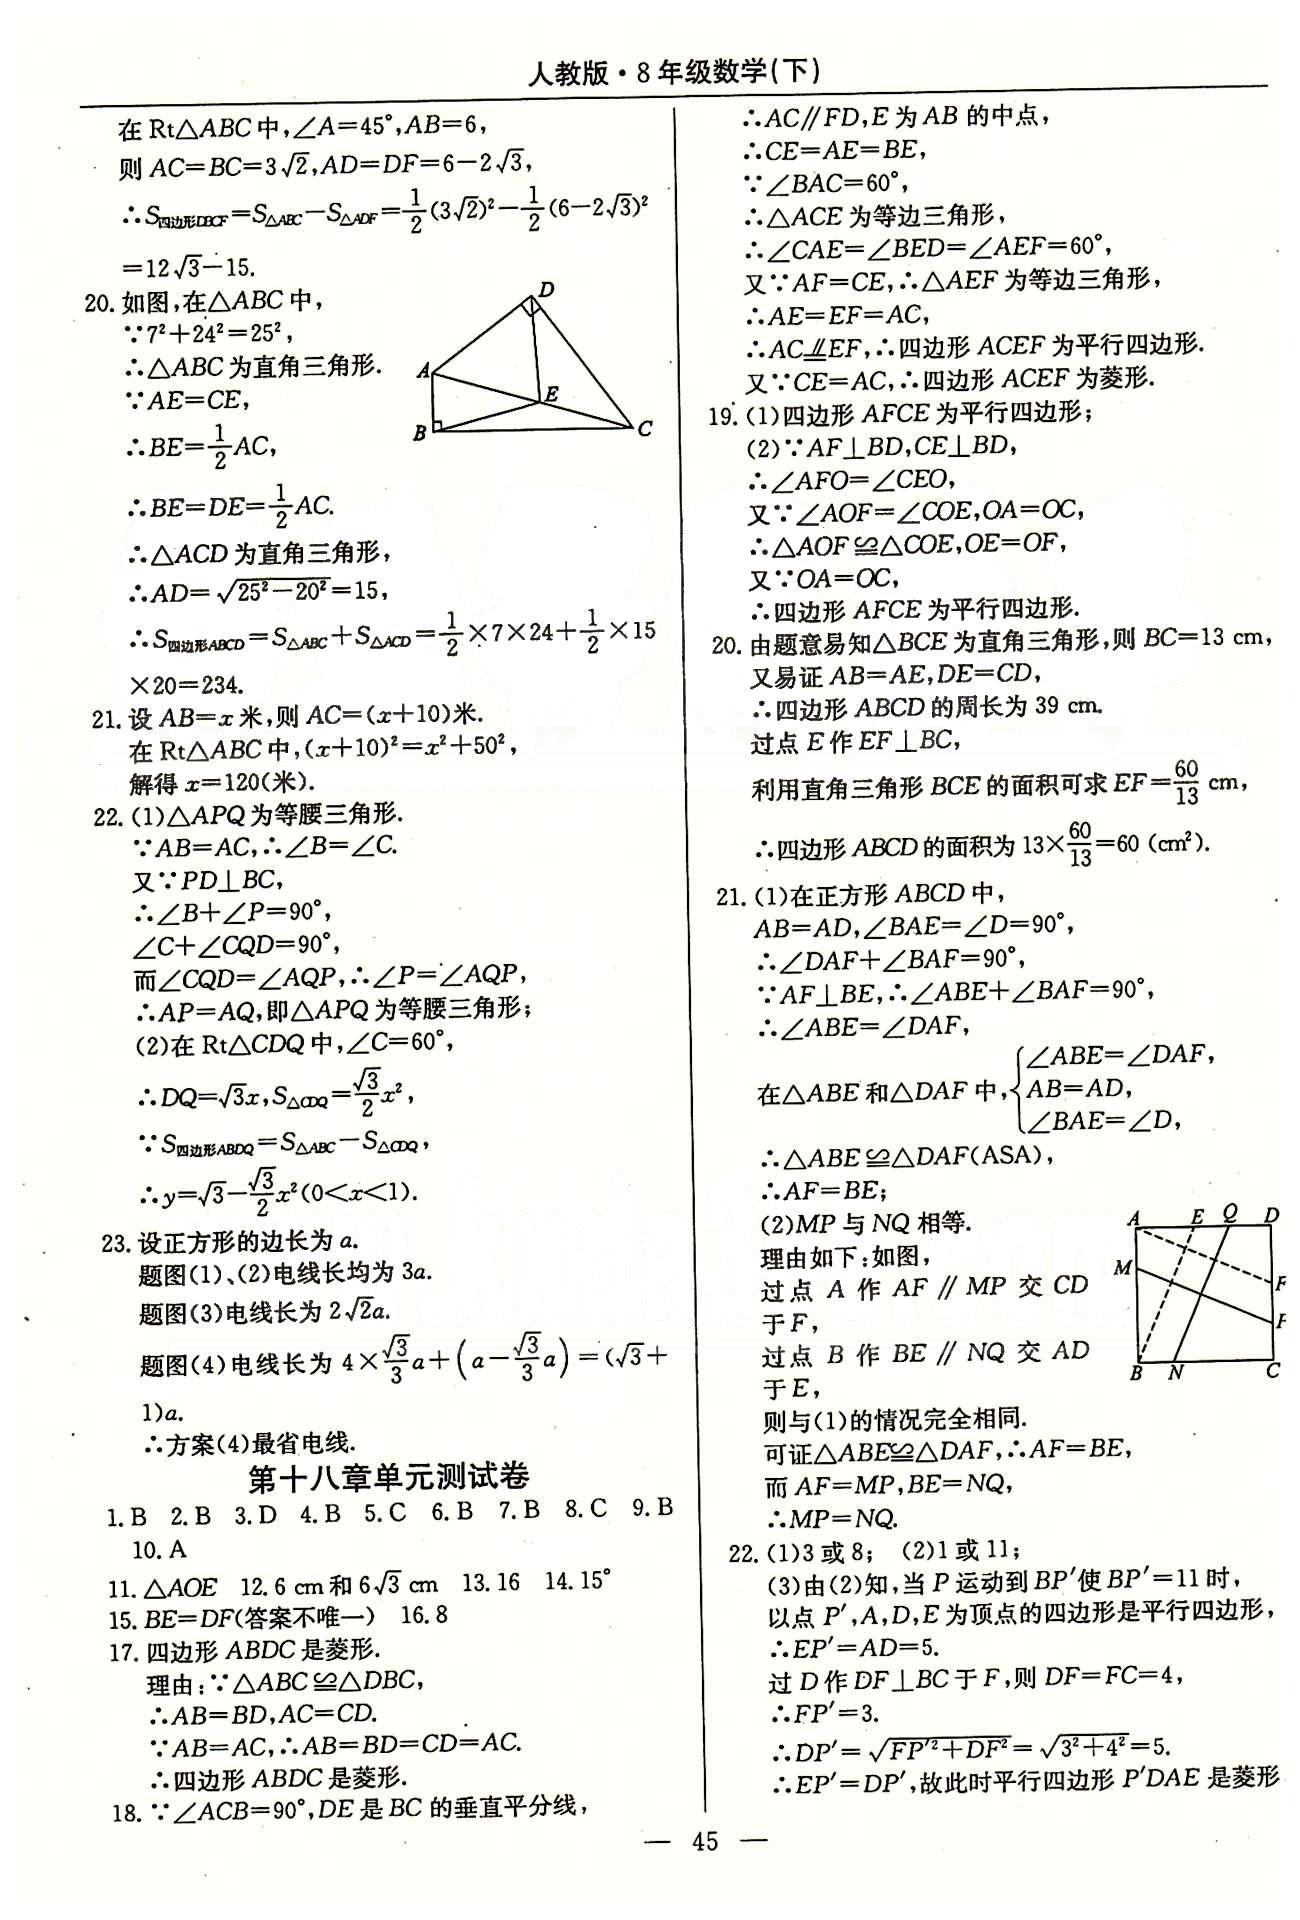 人教版·8年级数学(下)
在Rt△ABC中,∠A=45°,AB=6,
则AC=BC=3√2,AD=DF=6-2√3,
∴S四边形DBCF=S△ABC-S△ADF=1/2(3√2)²-1/2(6-2√3)²
=12√3-15.
20.如图,在△ABC中,
∵7²+24²=25²,
∴△ABC为直角三角形.
∵AE=CE,
∴BE=1/2AC,
∴BE=DE=1/2AC.
∴△ACD为直角三角形,
∴AD=√(25²-20²)=15,
∴S四边形ABCD=S△ABC+S△ACD=1/2×7×24+1/2×15
×20=234.
D
A
E
B
C
21.设AB=x米,则AC=(x+10)米.
在Rt△ABC中,(x+10)²=x²+50²,
解得x=120(米).
22.(1)△APQ为等腰三角形.
∵AB=AC,∴∠B=∠C.
又∵PD⊥BC,
∴∠B+∠P=90°,
∠C+∠CQD=90°,
而∠CQD=∠AQP,∴∠P=∠AQP,
∴AP=AQ,即△APQ为等腰三角形;
(2)在Rt△CDQ中,∠C=60°,
∴DQ=√3x,S△CDQ=√3/2x²,
∵S四边形ABDQ=S△ABC-S△CDQ,
∴y=√3-√3/2x²(0<x<1).
23.设正方形的边长为a.
题图(1)、(2)电线长均为3a.
题图(3)电线长为2√2a.
题图(4)电线长为4×√3/3a+(a-√3/3a)=(√3+
1)a.
∴方案(4)最省电线.
第十八章单元测试卷
1.B 2.B 3.D 4.B 5.C 6.B 7.B 8.C 9.B
10.A
11.△AOE 12.6 cm和6√3 cm 13.16 14.15°
15.BE=DF(答案不唯一) 16.8
17.四边形ABDC是菱形.
理由:∵△ABC≌△DBC,
∴AB=BD,AC=CD.
∵AB=AC,∴AB=BD=CD=AC.
∴四边形ABDC是菱形.
18.∵∠ACB=90°,DE是BC的垂直平分线,
∴AC∥FD,E为AB的中点,
∴CE=AE=BE,
∵∠BAC=60°,
∴△ACE为等边三角形,
∴∠CAE=∠BED=∠AEF=60°,
又∵AF=CE,∴△AEF为等边三角形,
∴AE=EF=AC,
∴AC⫽EF,∴四边形ACEF为平行四边形.
又∵CE=AC,∴四边形ACEF为菱形.
19.(1)四边形AFCE为平行四边形;
(2)∵AF⊥BD,CE⊥BD,
∴∠AFO=∠CEO,
又∵∠AOF=∠COE,OA=OC,
∴△AOF≌△COE,OE=OF,
又∵OA=OC,
∴四边形AFCE为平行四边形.
20.由题意易知△BCE为直角三角形,则BC=13 cm,
又易证AB=AE,DE=CD,
∴四边形ABCD的周长为39 cm.
过点E作EF⊥BC,
利用直角三角形BCE的面积可求EF=60/13 cm,
∴四边形ABCD的面积为13×60/13=60(cm²).
21.(1)在正方形ABCD中,
AB=AD,∠BAE=∠D=90°,
∴∠DAF+∠BAF=90°,
∵AF⊥BE,∴∠ABE+∠BAF=90°,
∴∠ABE=∠DAF,
在△ABE和△DAF中,{∠ABE=∠DAF,
AB=AD,
∠BAE=∠D,
∴△ABE≌△DAF(ASA),
∴AF=BE;
(2)MP与NQ相等.
理由如下:如图,
过点A作AF∥MP交CD
于F,
过点B作BE∥NQ交AD
于E,
则与(1)的情况完全相同.
可证△ABE≌△DAF,∴AF=BE,
而AF=MP,BE=NQ,
∴MP=NQ.
A E Q D
M
F
B N C
22.(1)3或8; (2)1或11;
(3)由(2)知,当P运动到BP′使BP′=11时,
以点P′,A,D,E为顶点的四边形是平行四边形,
∴EP′=AD=5.
过D作DF⊥BC于F,则DF=FC=4,
∴FP′=3.
∴DP′=√(FP′²+DF²)=√(3²+4²)=5.
∴EP′=DP′,故此时平行四边形P′DAE是菱形
— 45 —